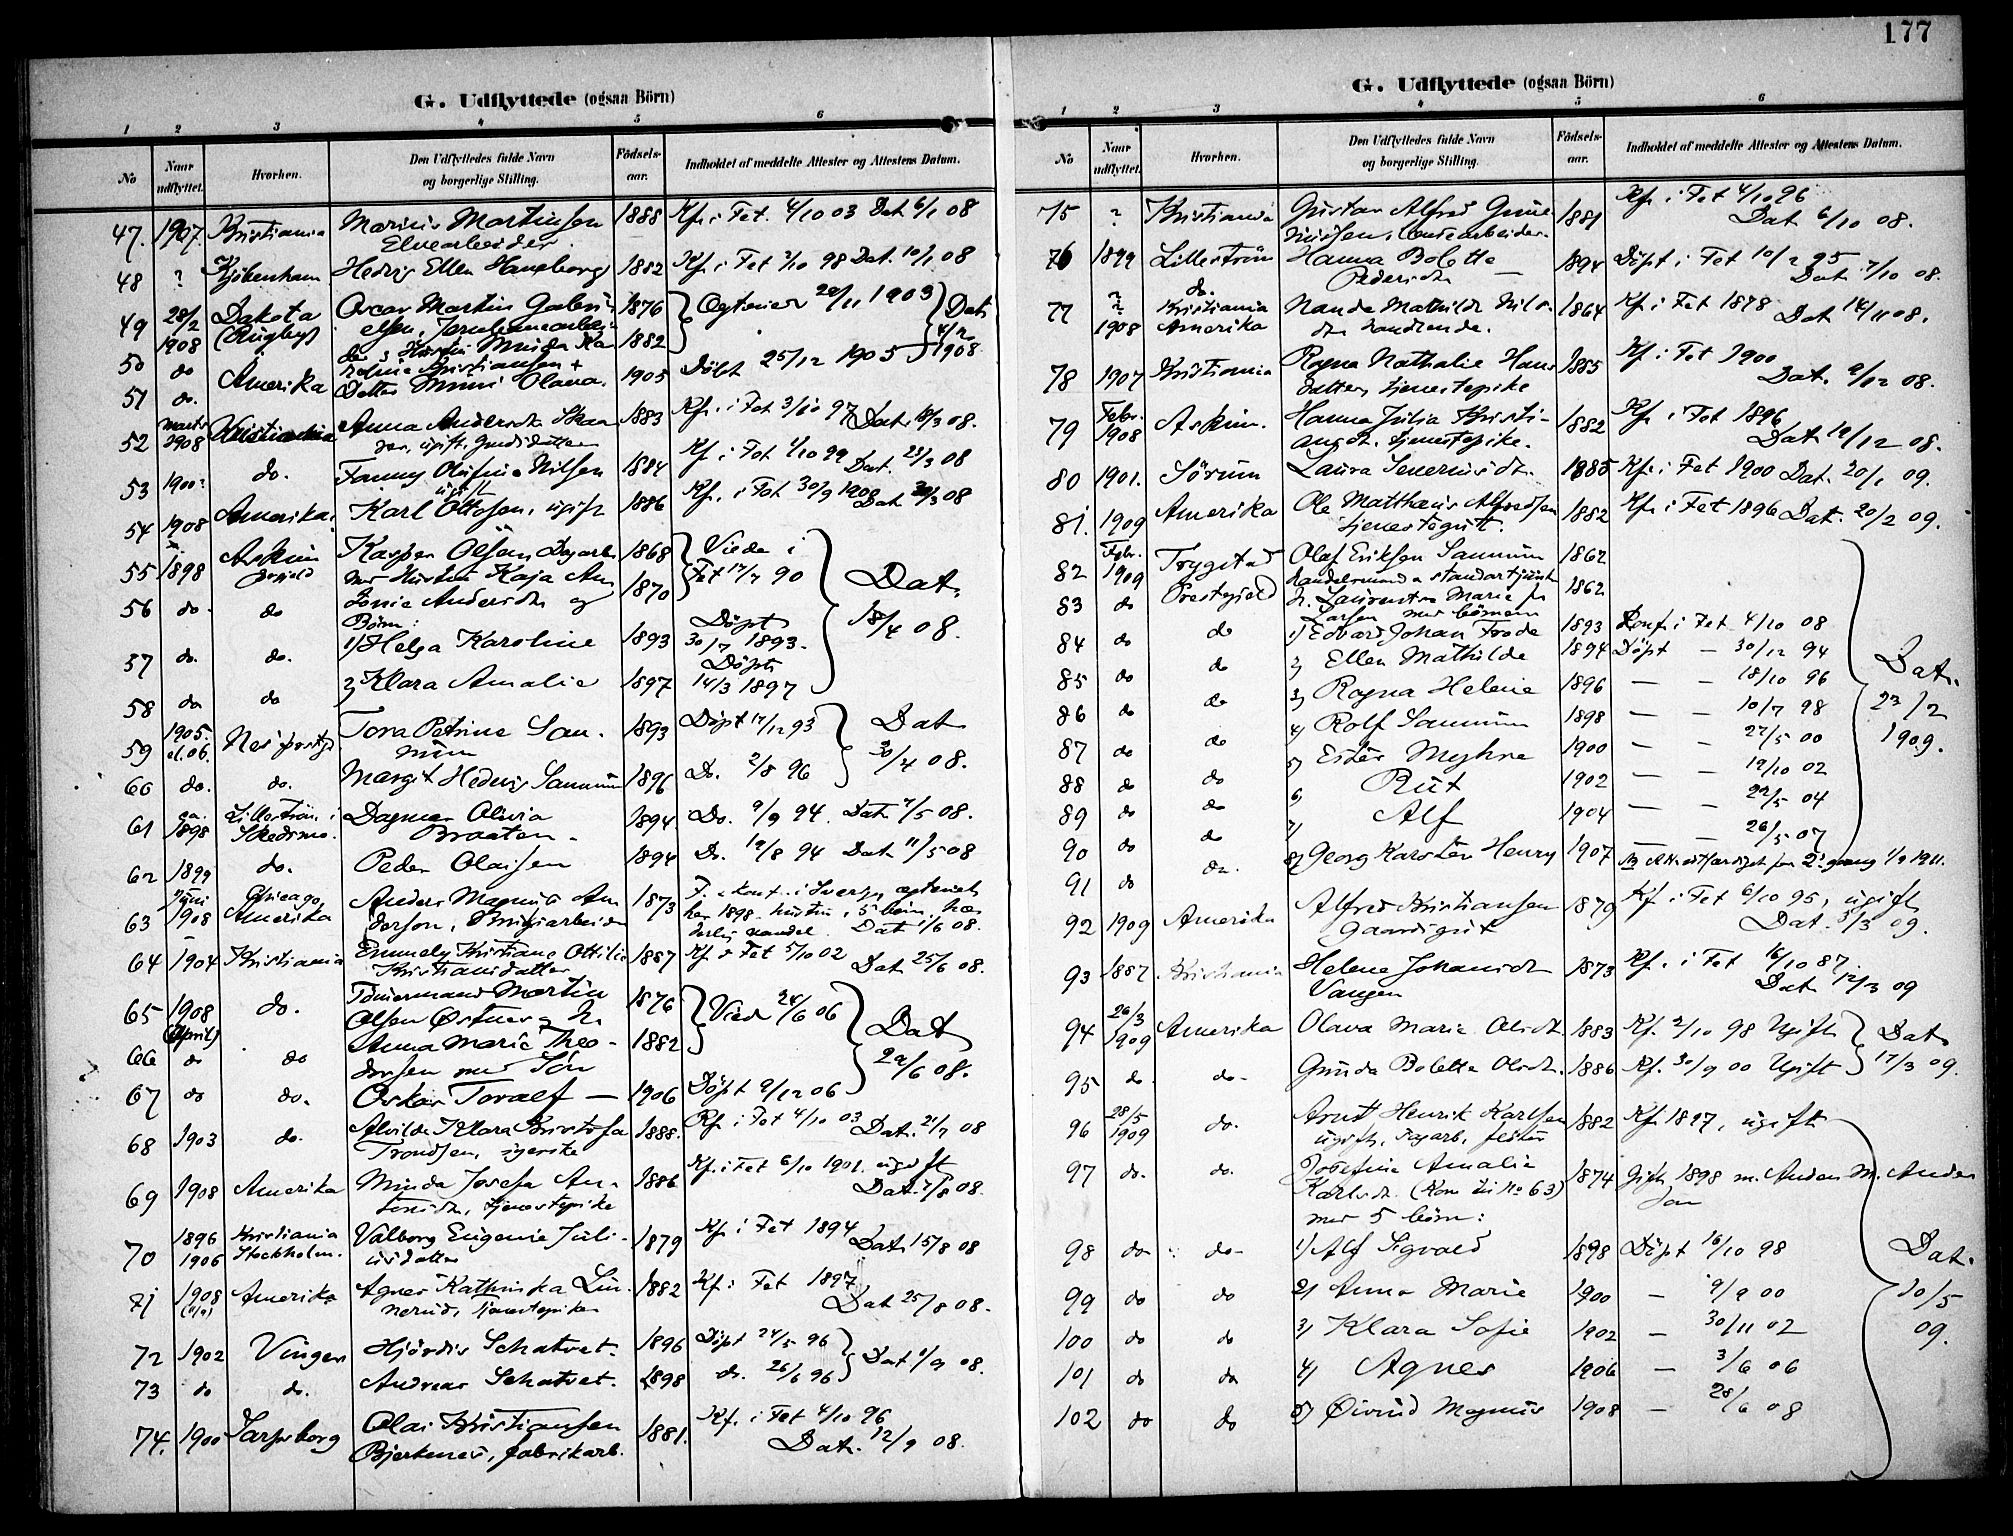 177
G. Udflyttede (ogsaa Börn)
1 2 3 4 5 6
No
Naar udflyttet.
Hvorhen.
Den Udflyttedes fulde Navn og borgerlige Stilling.
Födsels-aar.
Indholdet af meddelte Attester og Attestens Datum.
47. 1907. Kristiania Marius Martinsen 1888 Kf. i Fet. 4/10 03 Dat 6/1 08
Elvearbeider.
48 ? Kjöbenhavn Hedvig Ellen 1882 Kf. i Fet 2/10 98 Dat. 10/1 08
49 28/2 1908 Dakota (Rugby) Oscar Martin Gabri- 1876 1903 Dat.
50 do 1882 1908
51 do. Amerika Datter Minni Olava. 1905 Döbt 25/12 1905
52 Marts 1908 Kristiania Anna Andersdtr. 1883 Kf. i Fet 3/10 97 Dat. 18/3 08.
53 1900? do. Fanny Olufine Nilsen 1884 Kf. i Fet 1/10 99 Dat. 23/3 08
ugift
54 1908 Amerika. Karl Ottosen, ugift 1886 Kf. i Fet 30/9 1900 Dat 30/3 08
55 1898 Askim Kasper Olsen Dagarb. 1868 Viede i
med Hustru Kaja An- Fet 17/7 90 Dat.
56 do. do 1870 18/4 08.
Börn:
57 do. do. 1) Helga Karoline 1893 Döpt 30/7 1893.
58 do do 2) Klara Amalie 1897 Döpt 14/3 1897
59 1905. el. 06. Nes prestgj. Tora Petrine San- 1893 Döpt 17/12 93 Dat
num 30/4 08.
60 do. do. Margit Hedvig Sannum 1896 Do. 2/8 96
61 ca. 1898 Lilleström i Skedsmo. Dagmar Olivia 1894. Do. 9/9 94. Dat. 7/5 08.
Braaten.
62 1899 do. Peder Olaisen 1894 Do. 19/8 94 Dat 11/5 08
63 Juni 1908 Chicago, Amerika Anders Magnus An- 1873
derson, Dat. 1/6 08.
64 1904 Kristiania Emmely Kristiane Ottilie 1887 Kf. i Fet 5/10 02
Kristiansdatter Dat 25/6 08.
65 1908 (April) do. Tömmermand Martin 1876 Vied 24/6 06 Dat
66 do do Anna Marie Theo- 1882 29/6 08.
dorsen med Sön
67 do do. Oskar Toralf — 1906 Döpt 9/12 06
68 1903 do. Alvilde Klara Kristofa 1888. Kf. i Fet 4/10 03 Dat. 21/7 08
Trondsen, syerske
69 1908 Amerika Minda Josefa An- 1886 Kf. i Fet 6/10 1901. ugift
tonsdtr, tjenestepike Dat. 7/8 08.
70 1896 1906 Kristiania Stockholm. Valborg Eugenie Juli- 1879 Kf. i Fet 1894
usdatter Dat 15/8 08
71 1908 Amerika Agnes Kathinka Lun- 1882 Kf. i Fet 1897
nerud, tjenestepike Dat 25/8 08.
72 1902 Vinger Hjördis Schatvet. 1896 Döpt 24/5 96 Dat 1/9 08.
73 do do. Andreas Schatvet. 1898 do. 26/6 96
74. 1900 Sarpsborg Olai Kristiansen 1881. Kf. i Fet 4/10 96
Bjerkenes, fabrikarb. Dat. 12/9 08.
G. Udflyttede (ogsaa Börn)
1 2 3 4 5 6
No
Naar udflyttet.
Hvorhen.
Den Udflyttedes fulde Navn og borgerlige Stilling.
Födsels-aar.
Indholdet af meddelte Attester og Attestens Datum.
75 ? Kristiania Gustav Alfred 1881 Kf. i Fet 4/10 96
Dat 6/10 08.
76 1899 Lilleström Hanna Bolette 1894 Döpt i Fet 10/2 95
Pedersdtr — Dat 7/10 08.
77 ? 1908 do. Kristiania Amerika Nanda Mathilde Nils- 1864 Kf. i Fet 1878 Dat 14/11 08.
dtr handlende.
78 1907 Kristiania Ragna Nathalie Hans- 1885 Kf. i Fet 1900
datter, tjenestepike Dat. 9/12 08.
79 Febr. 1908 Askim. Hanna Julia Kristi- 1882 Kf. i Fet 1896
ansdtr. tjenestepike. Dat 19/12 08.
80 1901. Sörum Laura Severinsdtr. 1885 Kf. i Fet 1900 Dat. 20/1 09.
81. 1909 Amerika Ole Matthæus Alfredsen 1882 Kf. i Fet 1896 Dat. 20/2 09.
tjenestegut.
82 Febr. 1909 Trygstad Olaf Eriksen Sannum 1862
83 do Prestegjeld 1862
Larsen med börnene
84 do do 1) Edvard Johan Frode 1893 Konf. i Fet 4/10 08
85 do do 2) Ellen Mathilde 1894 Döpt — 30/12 94 Dat.
86 do do 3) Ragna Helene 1896 — — 18/10 96 23/2
87 do do 4) Rolf Sannum 1898 — — 10/7 98 1909.
88 do do 5) Ester Meyhre 1900 — — 27/5 00
89 do do 6) Rut 1902 — — 19/10 02
90 do do 7) Alf 1904 — — 29/5 04
91 do do. 8) Georg Karsten Henry 1907 — 26/5 07
92 1909 Amerika Alfred Kristiansen 1879 Kf. i Fet 6/10 95, ugift
Gaardsgut Dat. 3/3 09.
93 1887 Kristiania Helene Johansdtr 1873 Kf. i Fet 16/10 87.
Vangen Dat 12/3 09
94 26/3 1909 Amerika Olava Marie Olsdtr. 1883 Kf. 2/10 98 Ugift Dat
95 do. do. Gunda Bolette Olsdtr. 1886 Kf. 30/9 00 Ugift 17/3 09.
96 28/5 1909 do. Arnt Henrik Karlsen 1882 Kf. 1897, ugift
ugift, Dagarb.
97 do. do. Josefine Amalie 1874 Gift 1898 m. Anders M. Ander-
Karlsdtr. (Kone til No 63) son
med 5 börn:
98 do do 1) Alf Sigvald 1898 Döpt 16/10 98 Dat.
99 do do 2) Anna Marie 1900 — 9/9 00 10/5
100 do do 3) Klara Sofie 1902 — 30/11 02 09.
101 do do 4) Agnes 1906 — 3/6 06
102 do do 5) Öivind Magnus 1908 — 28/6 08